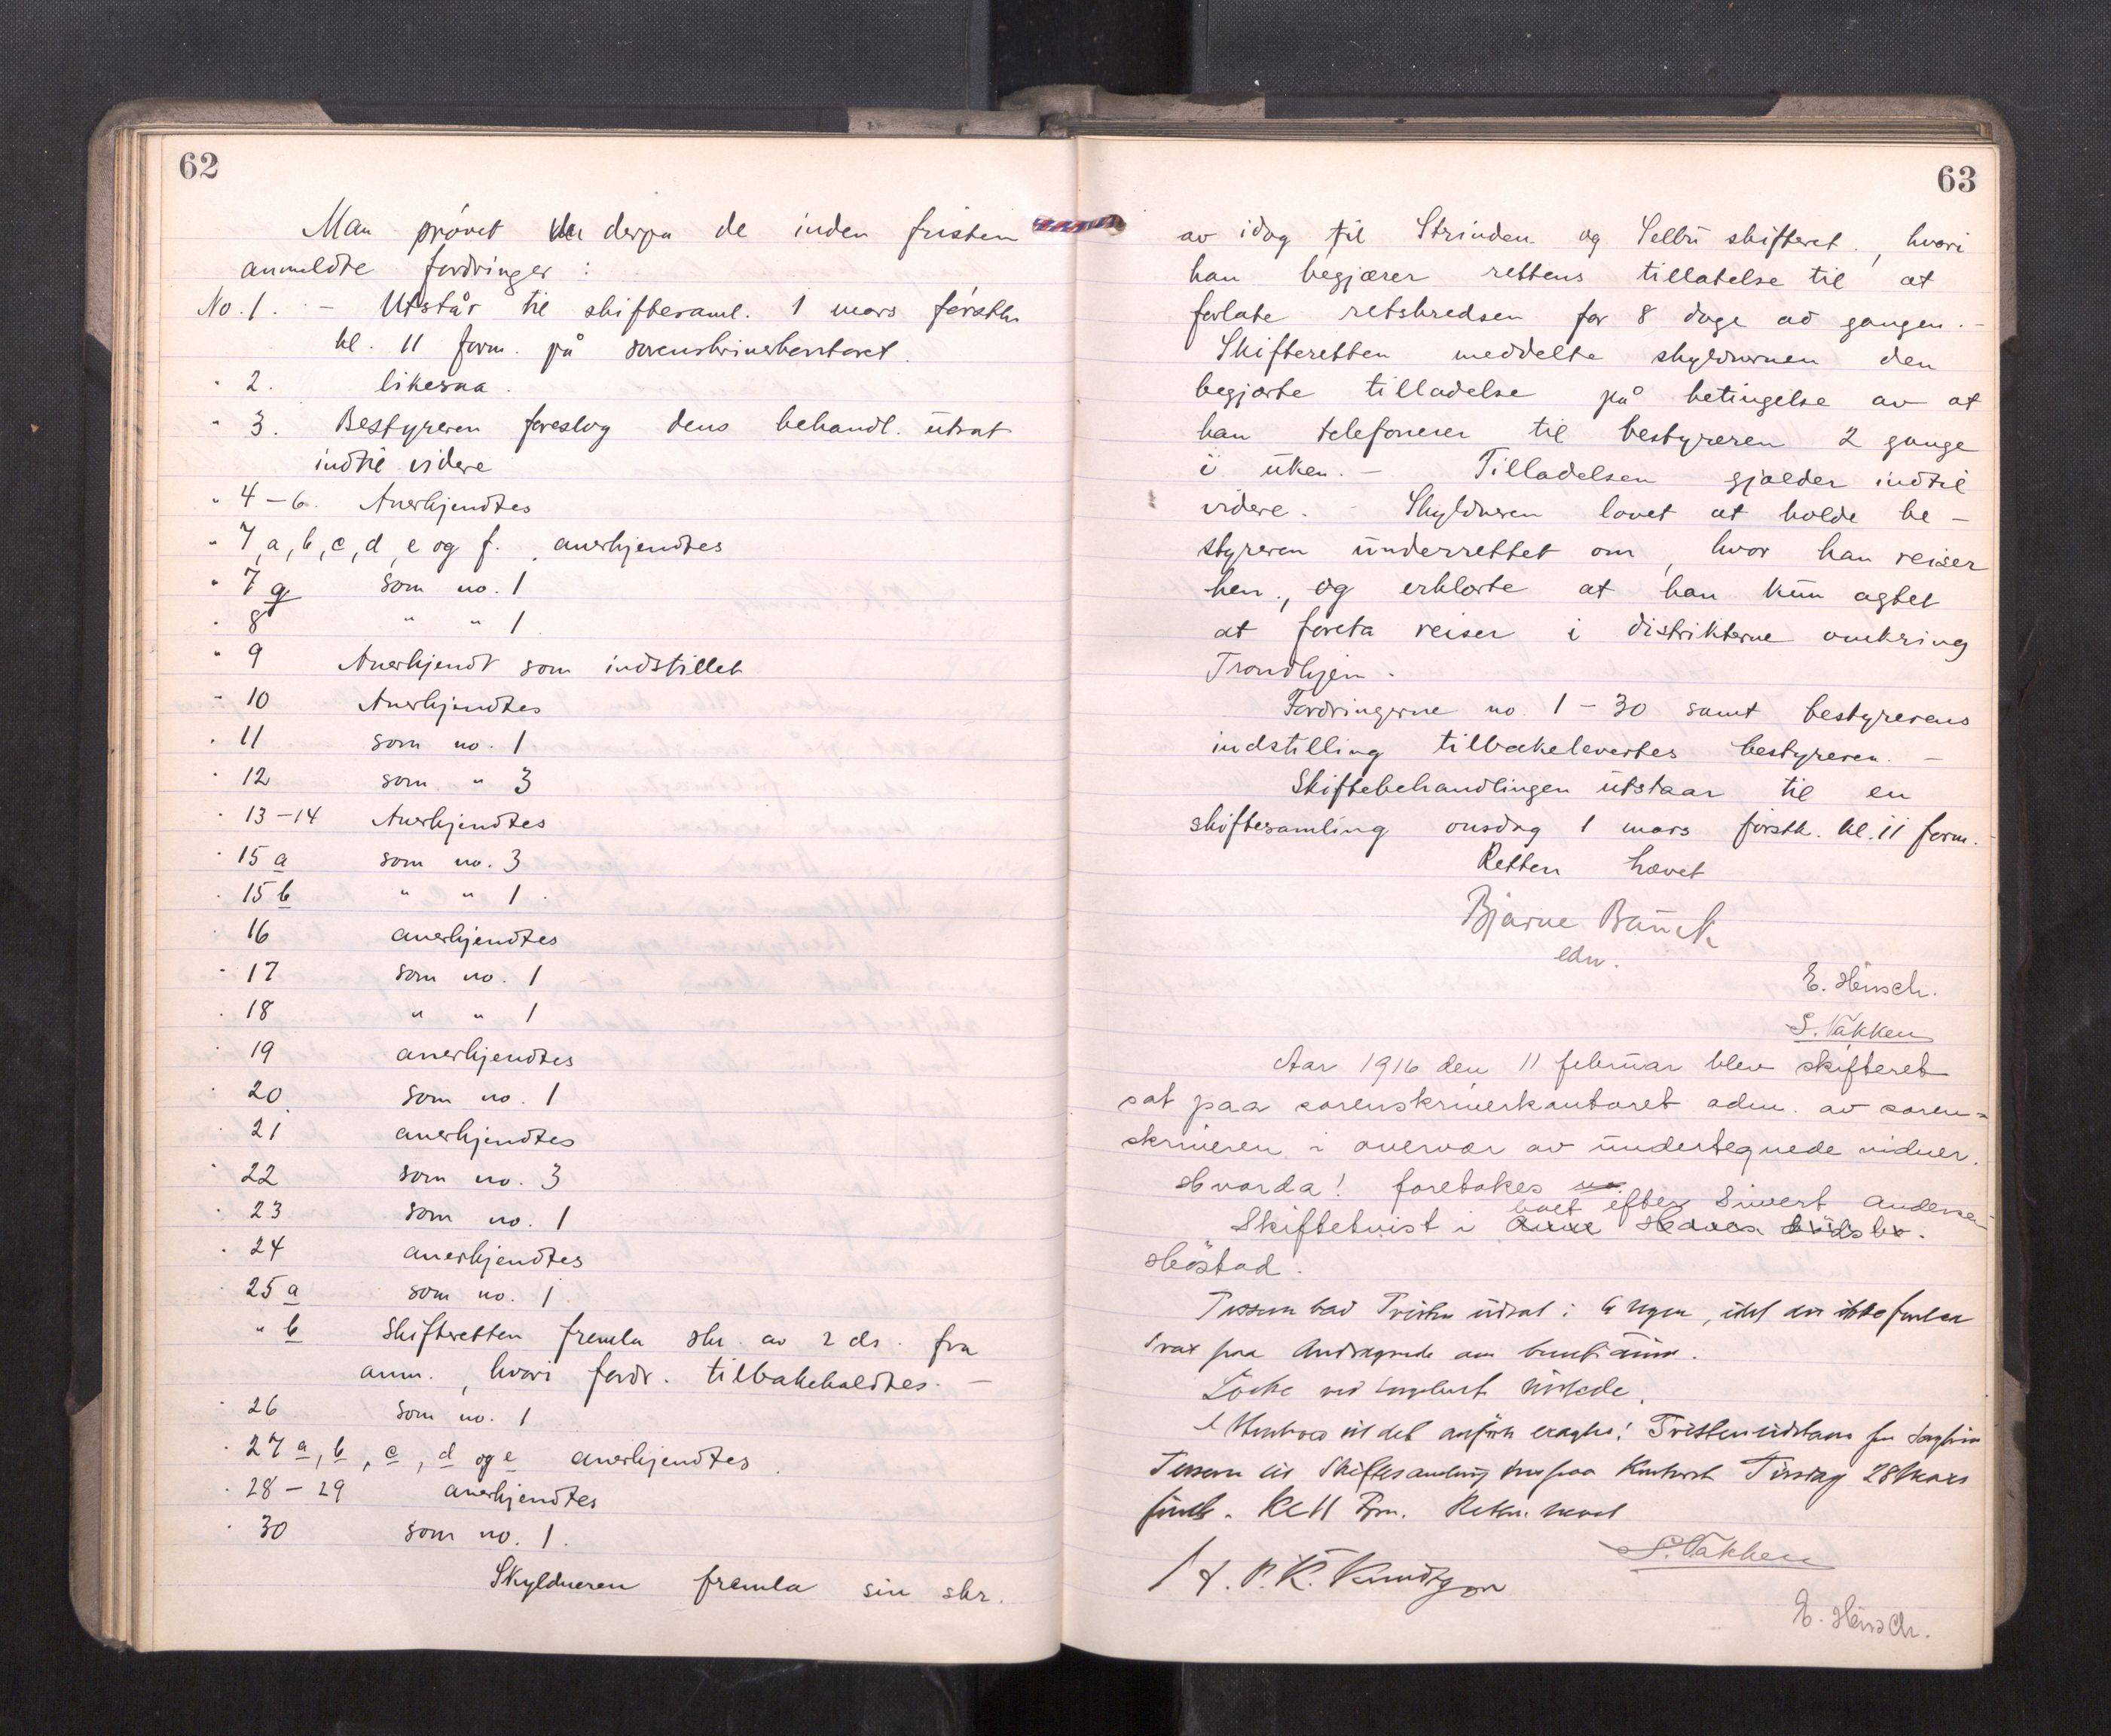 62
Man prøvet derpa de inden fristen
anmeldte fordringer :
No. 1. – Utstår til skiftesaml. 1 mars førstk.
kl. 11 form. på sorenskriverkontoret.
" 2. likesaa.
" 3. Bestyreren foreslog dens behandl. utsat
indtil videre
" 4 – 6. Anerkjendtes
" 7, a, b, c, d, e og f. anerkjendtes
" 7 g som no. 1
" 8 " " 1
" 9 Anerkjendt som indstillet
" 10 Anerkjendtes
" 11 som no. 1
" 12 som " 3
" 13 – 14 Anerkjendtes
" 15 a som no. 3
" 15 b " " 1.
" 16 anerkjendtes
" 17 som no. 1
" 18 " " 1
" 19 anerkjendtes
" 20 som no. 1
" 21 anerkjendtes
" 22 som no. 3
" 23 som no. 1
" 24 anerkjendtes
" 25 a som no. 1
" b Skifteretten fremla skr. av 2 ds. fra
anm., hvori fordr. tilbakeholdtes. –
" 26 som no. 1
" 27 a, b, c, d og e anerkjendtes.
" 28 – 29 anerkjendtes
" 30 som no. 1.
Skyldneren fremla sin skr.
63
av idag til Strinden og Selbu skifteret, hvori
han begjærer rettens tillatelse til at
forlate retskredsen for 8 dage ad gangen. –
Skifteretten meddelte skyldneren den
begjærte tilladelse på betingelse av at
han telefonerer til bestyreren 2 gange
i uken. – Tilladelsen gjælder indtil
videre. – Skyldneren lovet at holde be –
styreren underrettet om, hvor han reiser
hen, og erklærte at han kun agtet
at foreta reiser i distrikterne omkring
Trondhjem.
Fordringerne no. 1 – 30 samt bestyrerens
indstilling tilbakelevertes bestyreren. –
Skiftebehandlingen utstaar til en
skiftesamling onsdag 1 mars førstk. kl. 11 form.
Retten hævet
Bjarne Bauck
edv.
E. Hinsch.
S. Vakken
Aar 1916 den 11 februar blev skifteret
sat paa sorenskriverkontoret adm. av soren=
skriveren i overvær av undertegnede vidner.
Hvorda! foretokes
boet efter Sivert Andersen
Skiftetvist i
Høstad.
Tessem bad Tvisten utsat i 6 Uger, idet
Svar paa Andragende om
Løcke
Tvisten
Tessem til Skiftesamling paa Kontoret Tirsdag 28 Mars
førstk. Kl 11 Fm. Retten hævet
S. Vakken
P. K. Knudtzon
E. Hinsch.